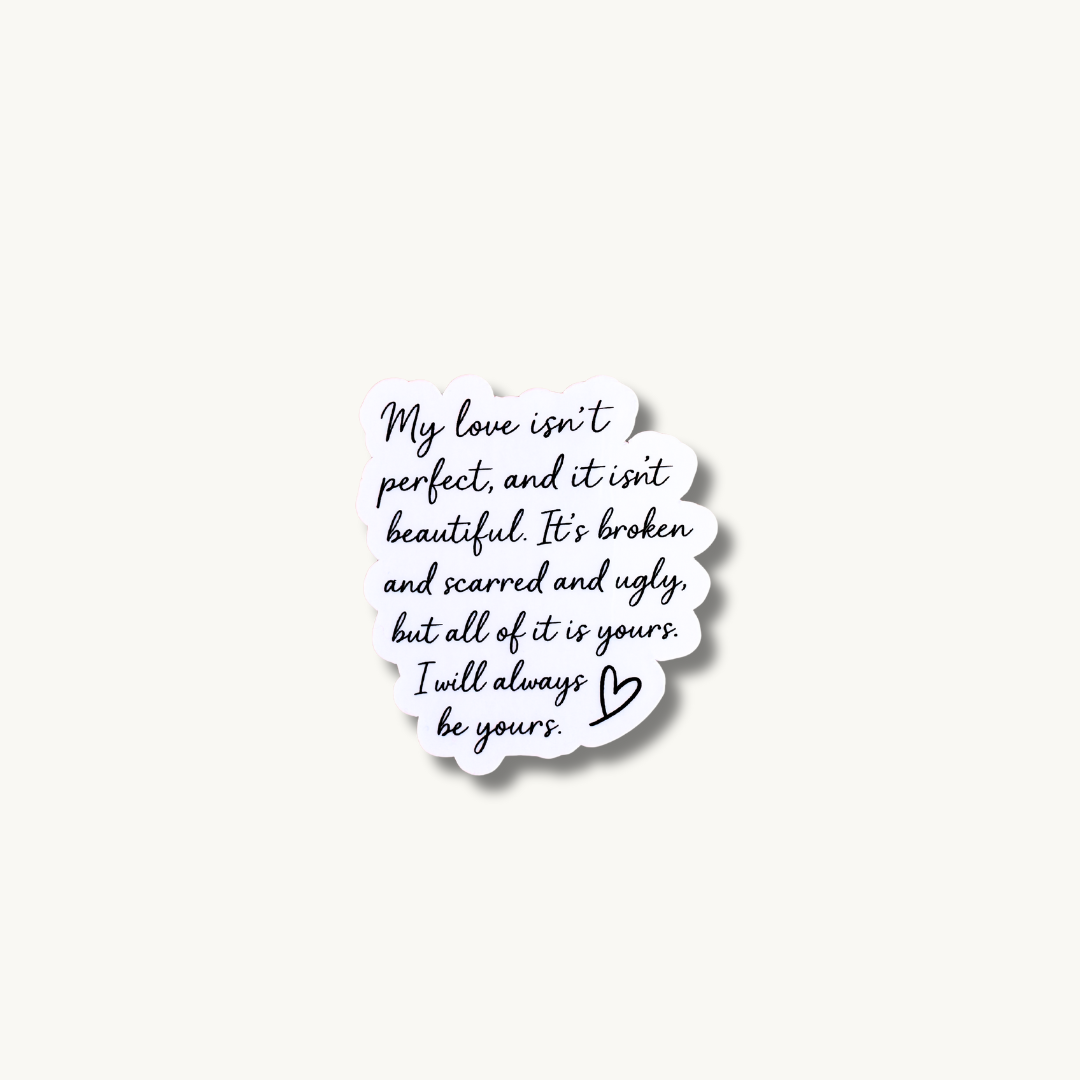 My love isn't
perfect, and it isn't
beautiful. It's broken
and scarred and ugly,
but all of it is yours.
I will always
be yours.